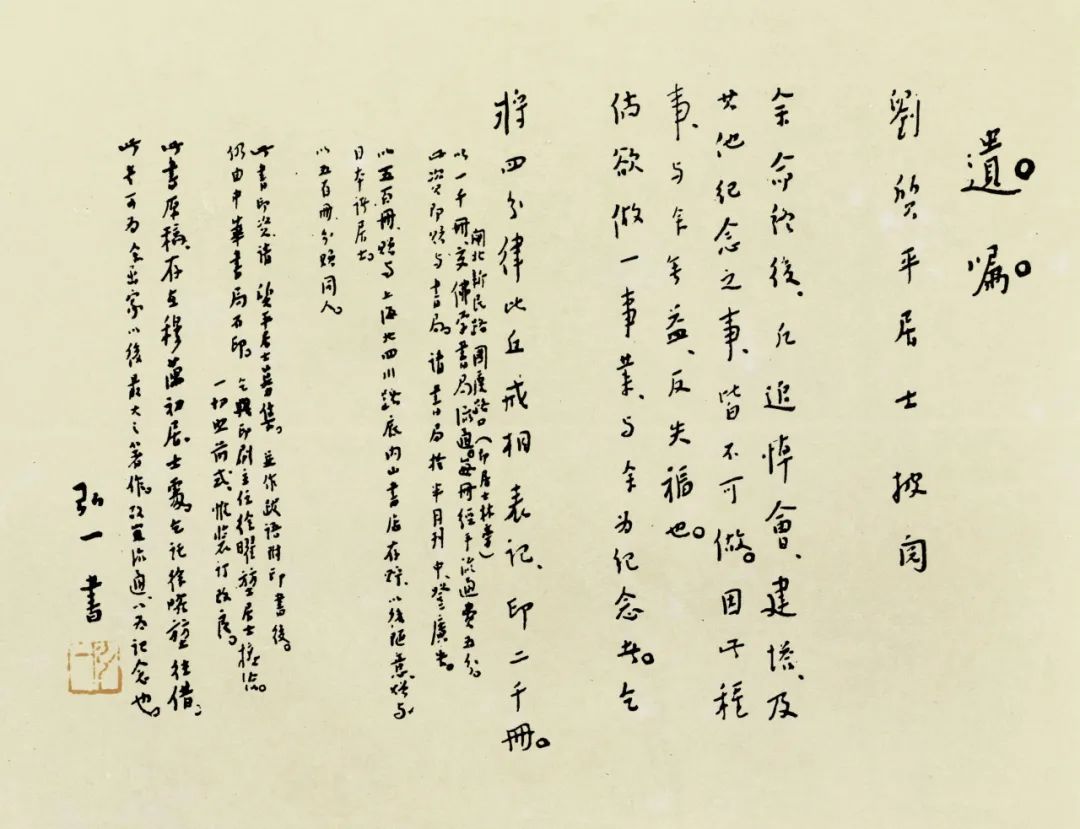 遺。囑。
劉質平居士披閱
余命終後、凡追悼會、建塔、及
其他紀念之事、皆不可做。因此種
事、与余無益、反失福也。
倘欲做一事業、与余为紀念者。乞
將四分律比丘戒相表記、印二千冊。
閘北新民路國慶路口(即居士林旁)
以一千冊、交佛學書局流通、每冊經手流通費五分。
此資即贈与書局。請書局於半月刊中、登廣告。
以五百冊、贈与上海北四川路底內山書店存貯、以後隨意贈与
日本諸居士。
以五百冊分贈同人。
此書印資請質平居士募集。並作跋語附印書後。
仍由中華書局石印。乞與印刷主任徐曜堃居士接洽。
一切照前式、惟裝訂改良。
此書原稿、存在穆藕初居士處。乞託徐曜堃往借。
此書可为余出家以後最大之著作。故宜流通、以为紀念也。
弘一書